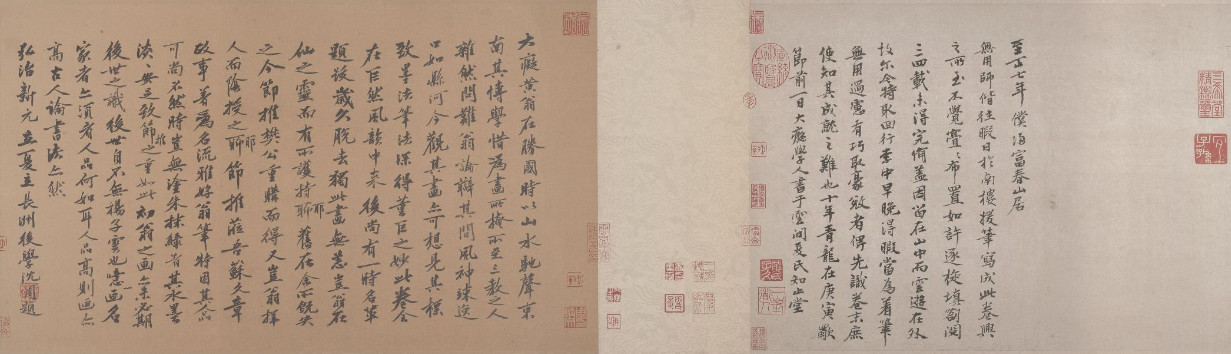 三希堂精鑑璽
宜子孫
至正七年僕歸富春山居
無用師偕往暇日於南樓援筆寫成此卷興
之所至不覺亹亹布置如許逐旋填劄閱
三四載未得完備蓋因留在山中而雲遊在外
故尔今特取回行李中早晚得暇當為著筆
無用過慮有巧取豪敓者俾先識卷末庶
使知其成就之難也十年青龍在庚寅歜
節前一日大癡學人書于雲間夏氏知止堂
大癡黃翁在勝國時以山水馳聲東
南其博學惜為畫所掩所至三教之人
雜然問難翁論辯其間風神竦逸
口如縣河今觀其畫亦可想見其標
致墨法筆法深得董巨之妙此卷全
在巨然風韻中來後尚有一時名輩
題跋歲久脫去獨此畫無恙豈翁在
仙之靈而有所護持耶舊在余所既失
之今節推樊公重購而得又豈翁擇
人而陰授之耶節推莅吾蘇文章
政事著為名流雅好翁筆特因其人品
可尚不然時豈無塗朱抹綠者其水墨
淡淡安足致節推之重如此初翁之画亦未必期
後世之識後世自不無揚子雲也噫画名
家者亦須看人品何如耳人品高則画亦
高古人論書法亦然
弘治新元立夏立長洲後學沈周題